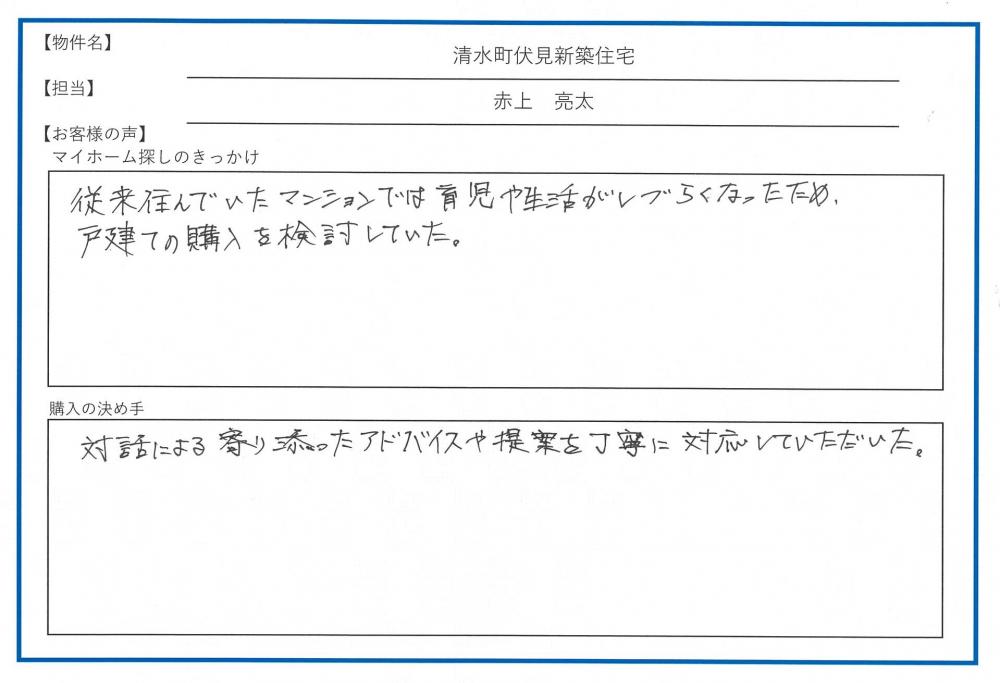 【物件名】
清水町伏見新築住宅
【担当】
赤上　亮太
【お客様の声】
マイホーム探しのきっかけ
従来住んでいたマンションでは育児や生活がしづらくなったため、
戸建ての購入を検討していた。
購入の決め手
対話による寄り添ったアドバイスや提案を丁寧に対応していただいた。